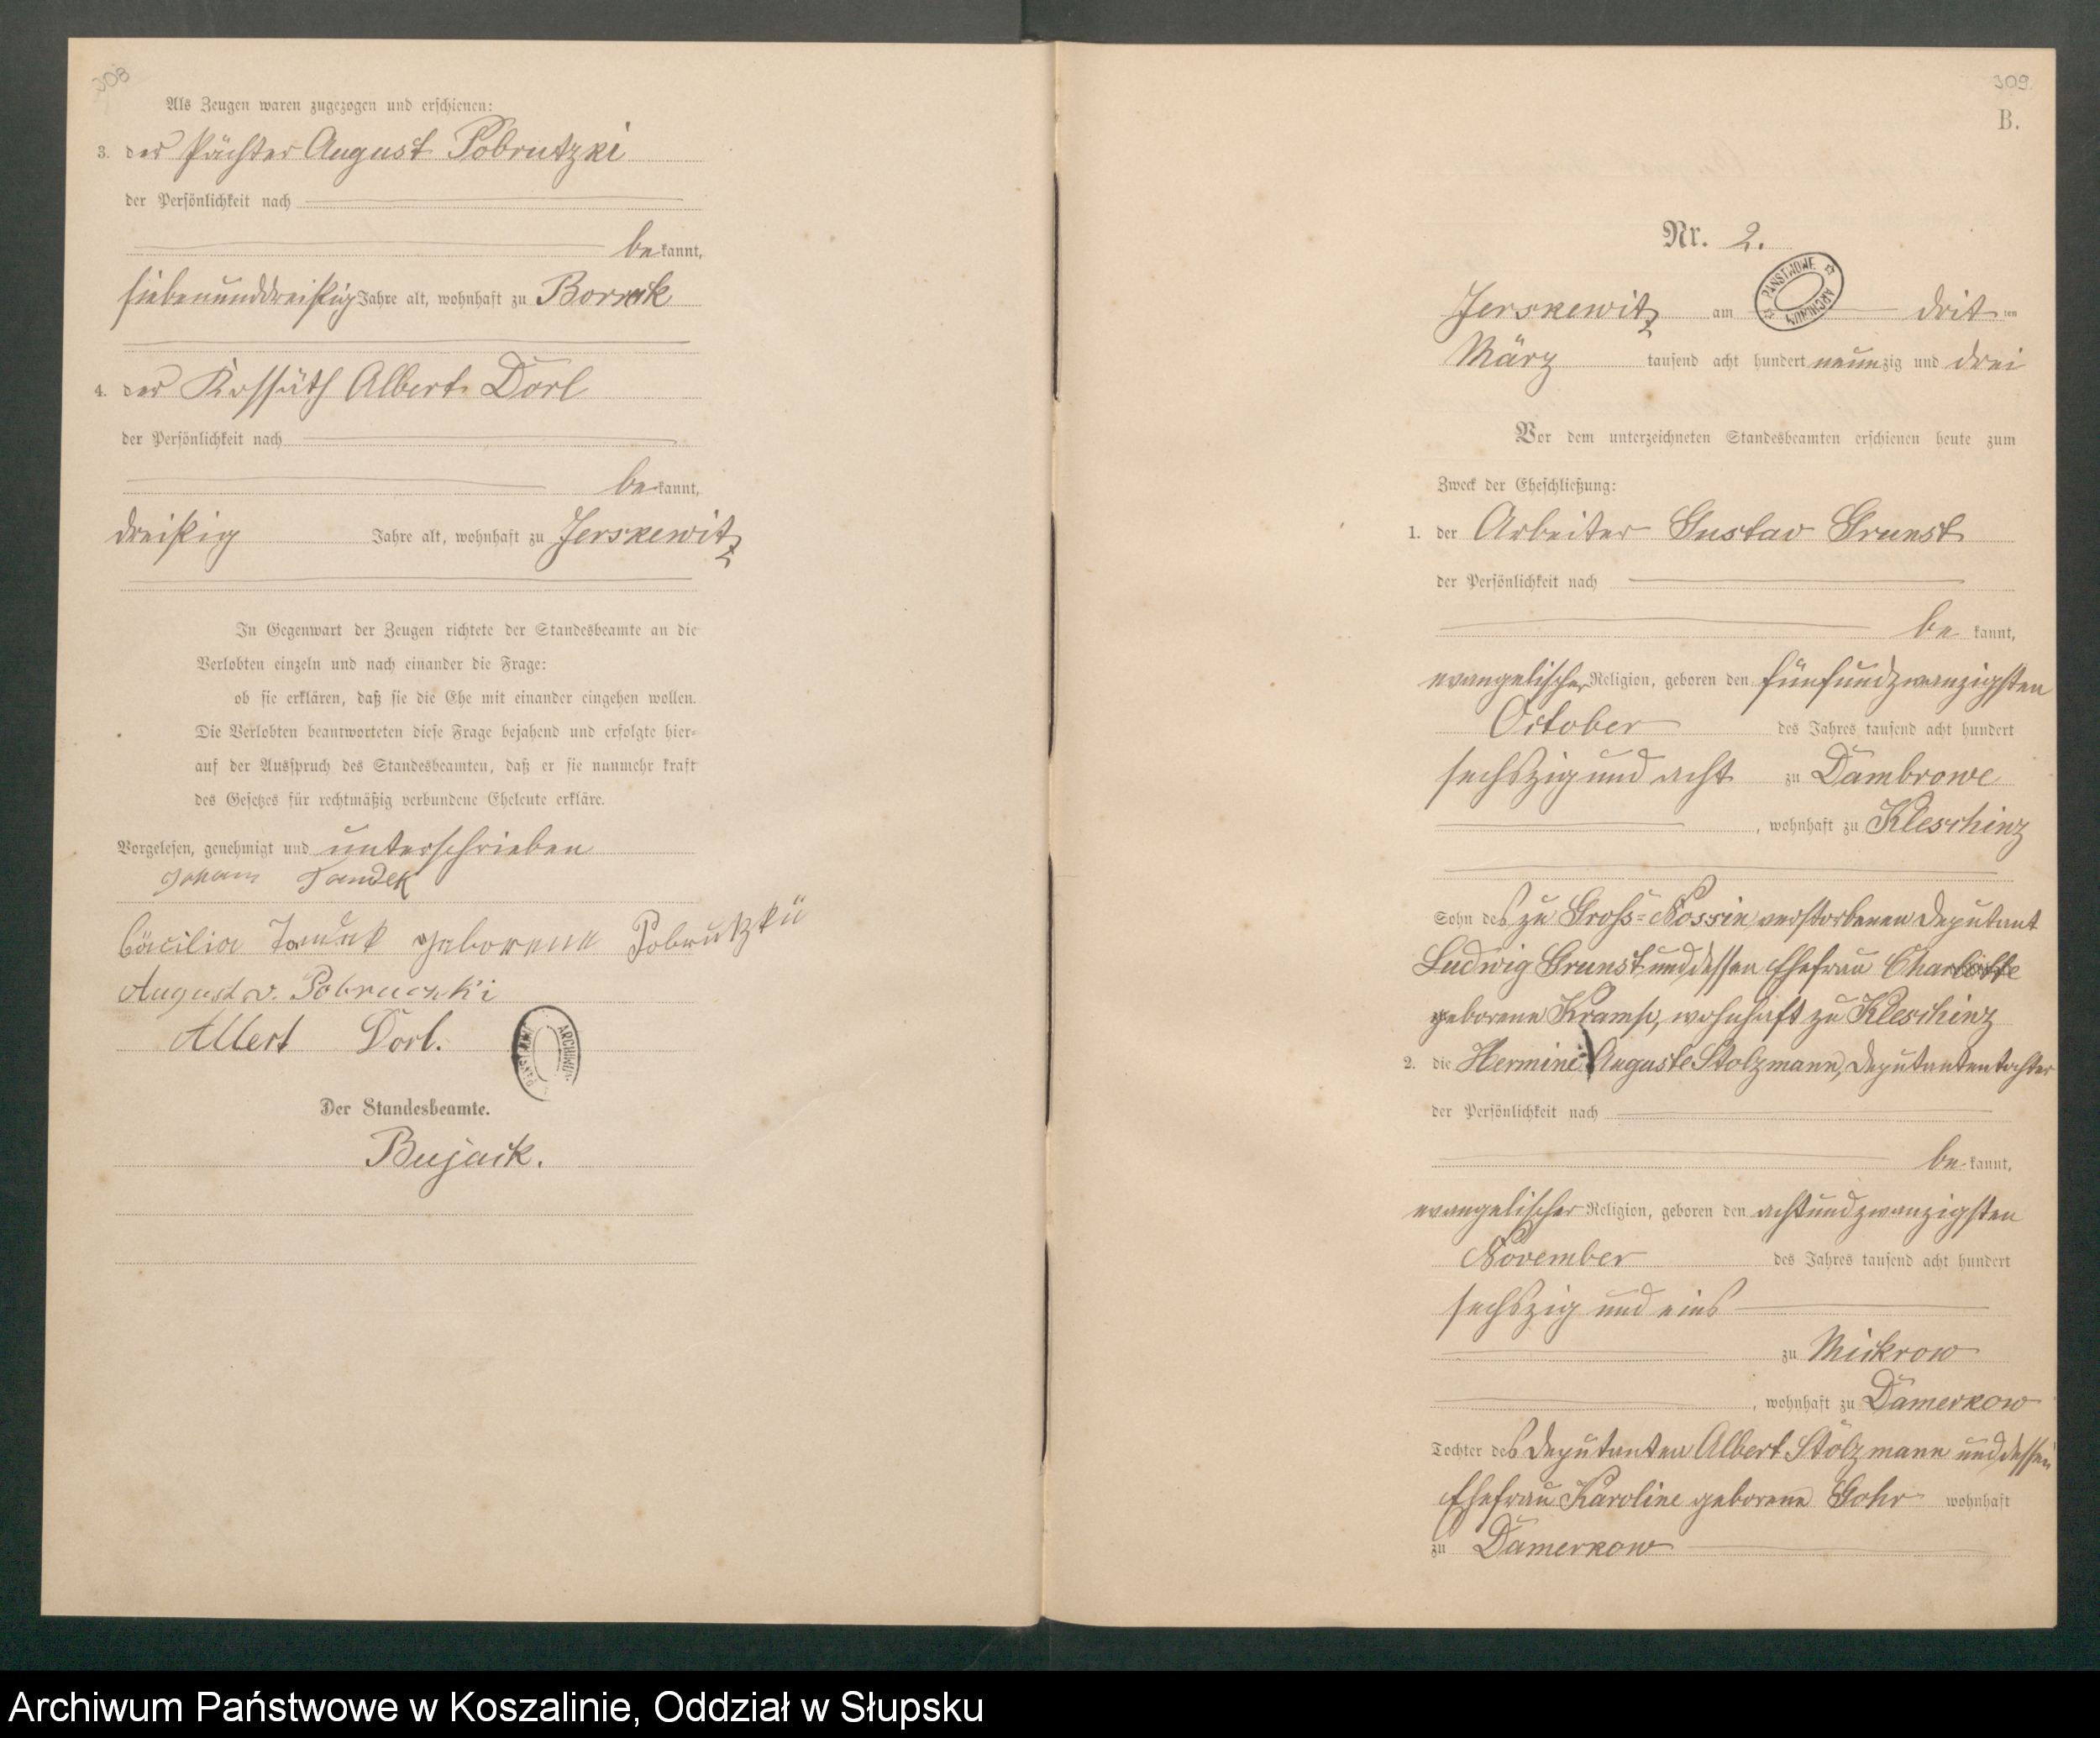 308
Als Zeugen waren zugezogen und erschienen:
3. der Pächter August Pobrutzki
der Persönlichkeit nach
bekannt,
siebenunddreißig Jahre alt, wohnhaft zu Borrek
4. der Kossäth Albert Dorl
der Persönlichkeit nach
bekannt,
dreißig Jahre alt, wohnhaft zu Jerskewitz
In Gegenwart der Zeugen richtete der Standesbeamte an die
Verlobten einzeln und nach einander die Frage:
ob sie erklären, daß sie die Ehe mit einander eingehen wollen.
Die Verlobten beantworteten diese Frage bejahend und erfolgte hier-
auf der Ausspruch des Standesbeamten, daß er sie nunmehr kraft
des Gesetzes für rechtmäßig verbundene Eheleute erkläre.
Vorgelesen, genehmigt und unterschrieben
Johann Tandek
Cäcilia Tandek geborene Pobrutzki
August v. Pobruczki
Albert Dorl.
ARCHIWUM
Der Standesbeamte.
Bujack.
309.
B.
Nr. 2.
PAŃSTWOWE ARCHIWUM
Jerskewitz am dritten
März tausend acht hundert neunzig und drei
Vor dem unterzeichneten Standesbeamten erschienen heute zum
Zweck der Eheschließung:
1. der Arbeiter Gustav Grunst
der Persönlichkeit nach
bekannt,
evangelischer Religion, geboren den fünfundzwanzigsten
October des Jahres tausend acht hundert
sechszig und acht zu Dambrowe
, wohnhaft zu Kleschinz
Sohn des zu Gross-Nossin verstorbenen Deputant
Ludwig Grunst und dessen Ehefrau Charlotte
geborene Kramp, wohnhaft zu Kleschinz
2. die Hermine Auguste Stolzmann, Deputantentochter
der Persönlichkeit nach
bekannt,
evangelischer Religion, geboren den achtundzwanzigsten
November des Jahres tausend acht hundert
sechszig und eins
zu Mickrow
, wohnhaft zu Damerkow
Tochter des Deputanten Albert Stolzmann und dessen
Ehefrau Karoline geborene Gohr wohnhaft
zu Damerkow
Archiwum Państwowe w Koszalinie, Oddział w Słupsku